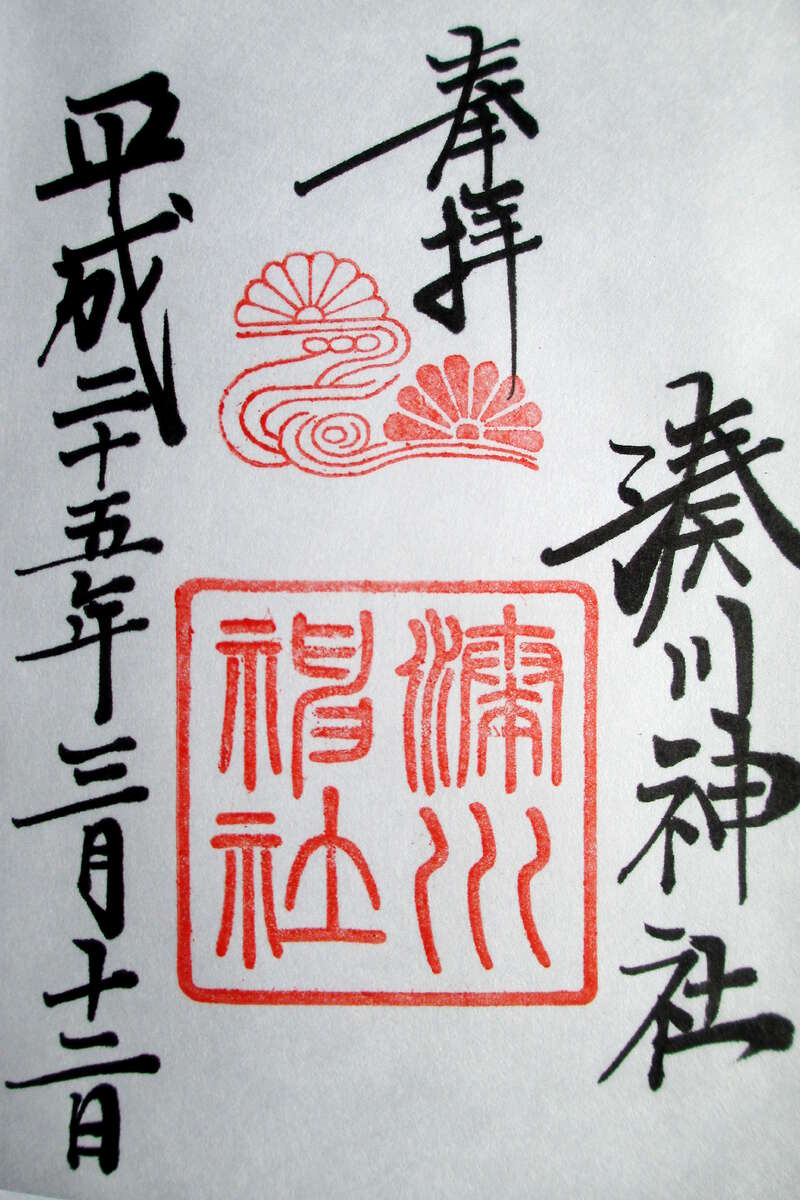 奉拝
湊川神社
湊川
神社
平成二十五年三月十二日